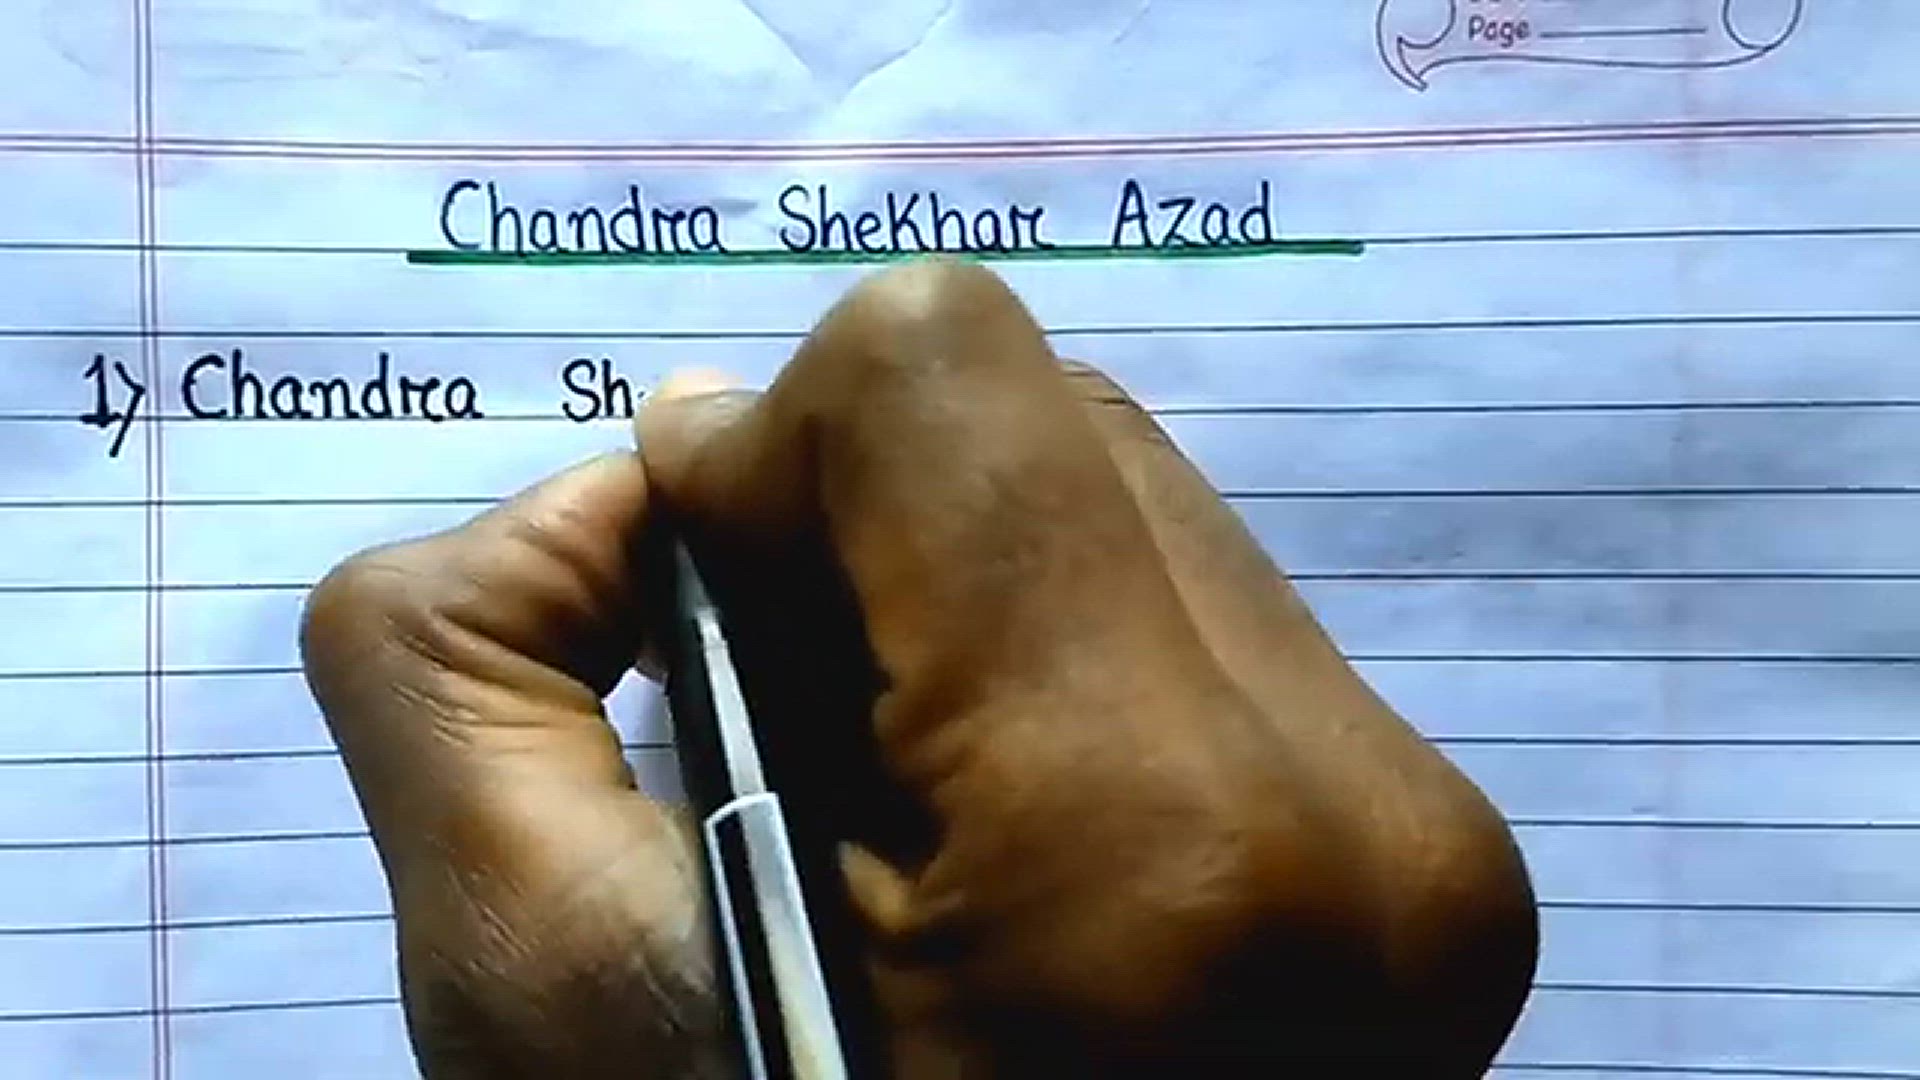 Page
Chandra Shekhar Azad
1) Chandra Sh